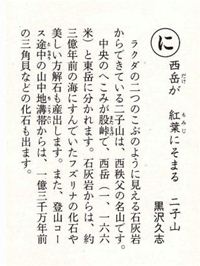 に
西岳が　紅葉にそまる　二子山
黒沢久志
ラクダの二つのこぶのように見える石灰岩
からできている二子山は、西秩父の名山です。
中央のへこみが股峠で、西岳（一、一六六
米）と東岳に分かれます。石灰岩からは、約
三億年前の海にすんでいたフズリナの化石や
美しい方解石も産出します。また、登山コー
ス途中の山中地溝帯からは、一億三千万年前
の三角貝などの化石も出ます。